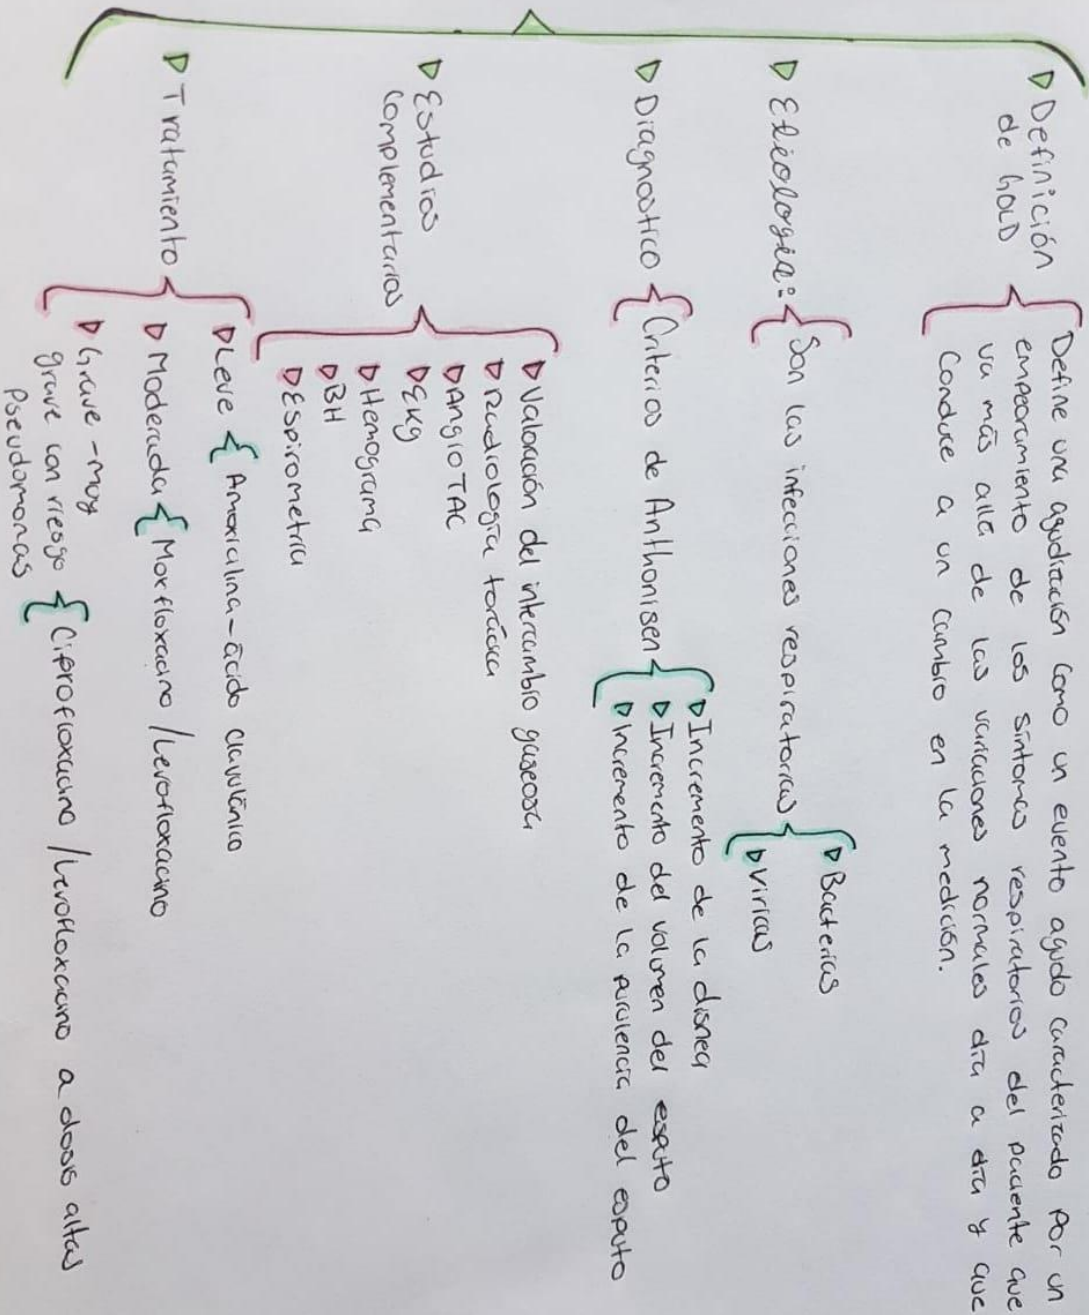 Definición
de GOLD
Define una agudización como un evento agudo caracterizado por un
empeoramiento de los síntomas respiratorios del paciente que
va más allá de las variaciones normales día a día y que
Conduce a un cambio en la medición.
Etiología:
Son las infecciones respiratorias
Bacterias
Viricas
Diagnostico
Criterios de Anthonisen
Incremento de la disnea
Incremento del volumen del esputo
Incremento de la purulencia del esputo
Estudios
Complementarios
Valoración del intercambio gaseoso
Radiología torácica
AngioTAC
EKg
Hemograma
BH
Espirometria
Tratamiento
Leve
Amoxicilina-ácido clavulánico
Moderada
Moxfloxacino / Levofloxacino
Grave - muy
grave con riesgo
Pseudomonas
Ciprofloxacino / Levofloxacino a dosis altas